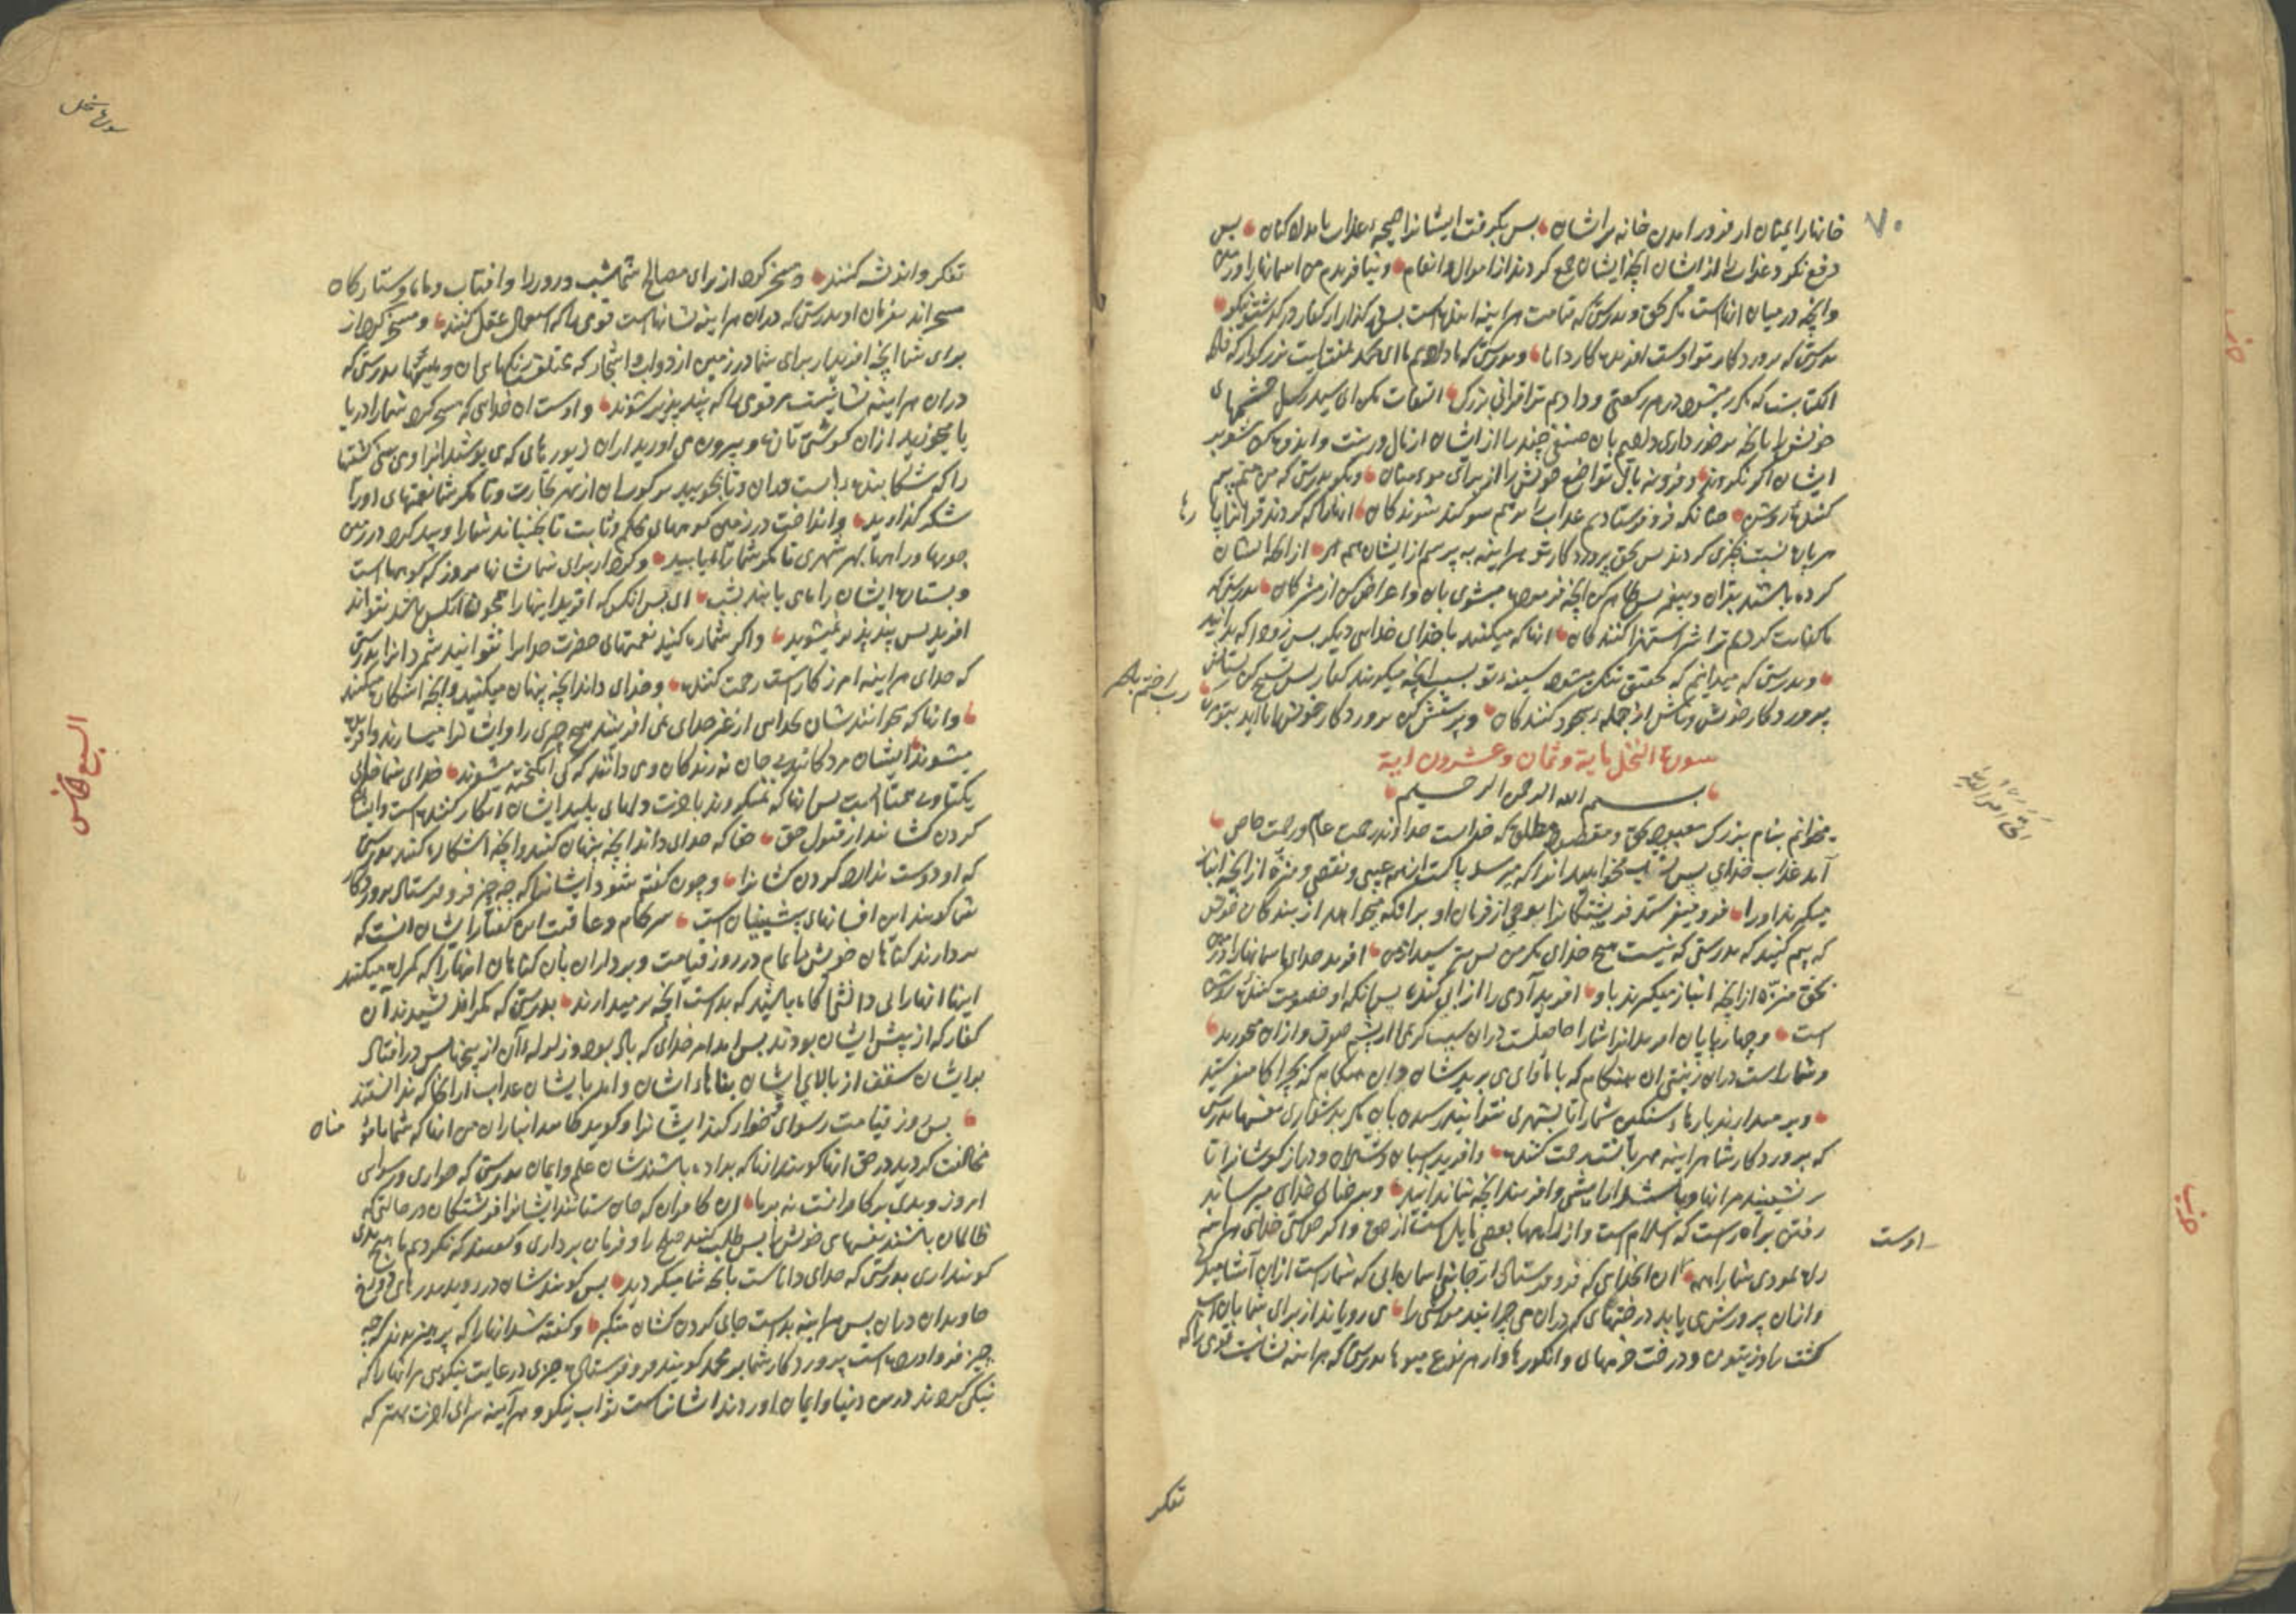 ۷۰
خانها را ایمنان از فرود امدن خانه بر اشان پس بکرفت ایشانرا صیحهٔ عذاب بامداد کنان پس
دفع نکرد عذاب را از اشان انچه ایشان جمع کردند از اموال و انعام و نیافریدم من اسمانها را و زمین
وانچه در میان انهاست مکر بحق و بدرستی که قیامت هر اینه ایندهاست پس در کذار از کفار در کذشتنی نیکو
بدرستی که پرورد کار تو اوست افرینندهٔ کار دانا و بدرستی که ما دادیم ترا ای محمد هفت ایت بزرکوار که فاتحة
الکتابست که مکرر میشود در هر رکعتی و دادیم ترا قرانی بزرک التفات مکن ای سید رسل چشمهای
خویش را بانچه برخورداری دادیم بان صنفی چند را از اشان از مال و زینت و اندوهناک مشو بر
ایشان اکر نکروند و فرو نه بال تواضع خویش را از برای مومنان و بکو بدرستی که من منم بیم
کنندهٔ روشن چنانکه فرو فرستادیم عذاب را بر قسم سوکند شوندکان انانکه کردند قرانرا پا رها
هر پاره نسبت بچیزی کردند پس بحق پرورد کار تو هر اینه به پرسم از ایشان همه را از انچه ایشان
کرده باشند بقران و پیغمبر پس ظاهر کن انچه فرموده میشوی بان و اعراض کن از مشرکان بدرستی که
ما کفایت کردیم ترا شر استهزا کنندکان انانکه میکنند با خدای خدایی دیکر پس زود که بدانند
و بدرستی که میدانیم که بتحقیق تنک میشود سینهٔ تو بسبب انچه میکویند کفار پس تسبیح کن بستایش
پرورد کار خویش و باش از جملهٔ سجود کنندکان و پرستش کن پرورد کار خویش را تا اید بتو مرک
سورة النحل مایة و ثمان و عشرون ایة
بسم الله الرحمن الرحیم
میخوانم بنام بزرک معبود بحق و مقصود مطلق که خداست خداوند رحمت عام و رحمت خاص
آمد عذاب خدای پس شتاب مخواهید انرا که میرسد پاکست از همه عیبی و نقصی و منزه از انچه انباز
میکیرند او را فرو میفرستد فریشتکانرا بوحی از فرمان او بر انکه میخواهد از بندکان خویش
که بیم کنید که بدرستی که نیست هیچ خدای مکر من پس بترسید از من افرید خدای اسمانها را و زمین
بحق منزه از انچه انباز میکیرند باو افرید آدمی را از آبی کنده پس انکه او خصومت کنندهٔ روشن
است و چهار پایان افرید انرا شما را حاصلست دران سبب کرمی از پشم و صوف و از ان میخورید
و شما راست دران زینتی ان هنکام که با ماوای می بریدشان و ان هنکام که بچرا کاه میفرستید
و بر میدارند بارهای سنکین شما را تا بشهری نتوانید رسیدن بان مکر بدشواری نفسها بدرستی
که پرورد کار شما هر اینه مهربانست رحمت کننده و افرید اسبان و شتران و دراز کوشانرا تا
بر نشینید مر انها و باشند ارایشی و افریند انچه شما ندانید و بر خدای میرساند
رفتن براه راست که اسلام است و از راهها بعضی مایل است از حق و اکر خواستی خدای هر اینه
راه نمودی شما را همه اوست ان خدای که فرو فرستاد از جانب اسمان ابی که شما راست از ان آشامیدنی
و از ان پرورش می یابد درختهای که دران می چرانید مواشی را می رویاند از برای شما بان اب
کشت را و زیتون و درخت خرمای و انکورها و از هر نوع میوها بدرستی که هر اینه نشانیست قومی را که
تفکر
تفکر و اندیشه کنند و مسخر کرد از برای مصالح شما شب و روز را و افتاب و ماه و ستارکان
مسخراند بفرمان او بدرستی که دران هر اینه نشانهاست قومی را که استعمال عقل کنند و مسخر کرد از
برای شما انچه افریدار برای شما در زمین از دواب و اشجار که مختلف رنکهای ان و هیئتها بدرستی که
دران هر اینه نشانیست مر قومی را که پند پذیر شوند و اوست ان خدایی که مسخر کرد شما را دریا
تا بخورید از ان کوشتی تازه و بیرون می اورید از ان زیورهای که می پوشید انرا و می بینی کشتیها
را که شکافنده است دران و تا بجویید سرکوران از بهر تجارت و تا مکر شما نعمتهای او را
شکر کذارید و انداخت در زمین کوههای محکم و ثابت تا نجنباند شما را و پدید کرد در زمین
جویها و راهها بهر شهری تا مکر شما راه یابید و کرد از برای شما نشانها بروز که کوههاست
و بستاره ایشان راه می یابند بشب ای پس انکس که افرید اینها را همچون انکس باشد نتواند
افرید پس پند پذیر نمیشوید و اکر شماره کنید نعمتهای حضرت خدایرا نتوانید شمرد انرا بدرستی
که خدای هر اینه امرزکار است رحمت کننده و خدای داند انچه پنهان میکنید و انچه اشکاره میکنید
وانها که میخوانندشان بخدایی از غیر خدای نمی افرینند هیچ چیزی را و ایشانرا میسازند و افریده
میشوند ایشان مردکانند بی جان نه زندکان و نمی دانند که کی انکیخته میشوند خدای شما خدای
یکتاو بی همتا است پس انها که نمیکروند باخرت دلهای پلید ایشان انکار کننده است و ایشان
کردن کشانند از قبول حق حقا که خدای داند انچه پنهان کنند و انچه اشکاره کنند بدرستی
که او دوست ندارد کردن کشانرا و چون کفته شود ایشانرا که چه چیز فرو فرستاد پرورد کار
شما کویند این افسانهای پیشینیان است سرکام و عاقبت این کفتار ایشان انست که
بردارند کناهان خویش را تمام در روز قیامت و بردارند ان بان کناهان انها را که کمراه میکنند
اینها انها را بی دانشی آکاه باشید که بد است انچه بر میدارند بدرستی که مکر اندیشیدند آن
کفار که از پیش ایشان بودند پس امد امر خدای که باد بود و زلزله آن از بیخ پس در افتاد
بر ایشان سقف از بالای ایشان بناهاء اشان و امد بایشان عذاب از انجا که ندانستند
پس روز قیامت رسوای و خوار کند ایشانرا و کوید کجا اند انبازان من انها که شما با مومنان
مخالفت کردید در حق انها کویند انها که بداده باشندشان علم و ایمان بدرستی که خواری و رسوایی
امروز و بدی بر کافرانست نه بر ما ان کافران که جان ستانند ایشانرا فرشتکان در حالتی که
ظالمان باشند نفسهای خویش را پس طلب کنند صلح را و فرمان برداری و کویند که نکردیم ما هیچ بدی
کویند اری بدرستی که خدای داناست بانچه شما میکردید پس کویندشان در روید بدرهای دوزخ
جاویدان دران پس هر اینه بد است جای کردن کشان متکبر و کفته شد انها را که پرهیز بودند که چه
چیز فرو اورده است پرورد کار شما بر محمد کویند فرو فرستاد چیزی در غایت نیکویی مر انها را که
نیکی کردند در این دنیا و ایمان اوردند ایشانراست ثواب نیکو و هر آینه سرای اخرت بهتر که
سورهٔ نحل
السبع الخامس